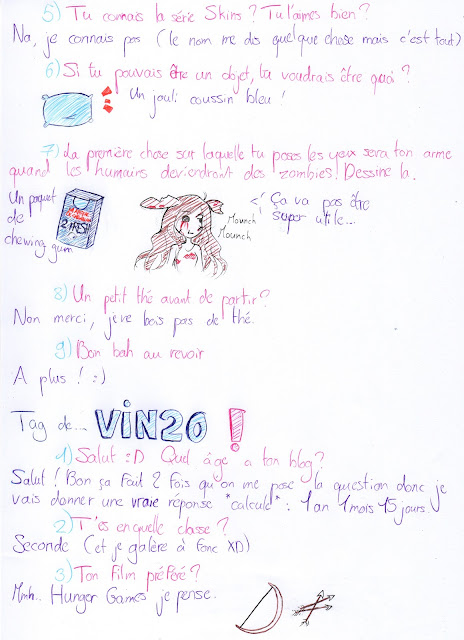 5) Tu connais la série Skins ? Tu l'aimes bien ?
Na, je connais pas (le nom me dis quelque chose mais c'est tout)
6) Si tu pouvais être un objet, tu voudrais être quoi ?
Un jouli coussin bleu !
7) La première chose sur laquelle tu poses les yeux sera ton arme
quand les humains deviendront des zombies ! Dessine la.
Un paquet
de
chewing gum
2 FRESH
Mounch
Mounch
<' Ça va pas être
super utile...
8) Un petit thé avant de partir ?
Non merci, je ve bois pas de thé.
9) Bon bah au revoir
A plus ! :)
Tag de... VIN20 !
1) Salut :D Quel âge a ton blog ?
Salut ! Bon ça fait 2 fois qu'on me pose la question donc je
vais donner une vraie réponse *calcule* : 1 an 1 mois 15 jours.
2) T'es en quelle classe ?
Seconde (et je galère à fond XD)
3) Ton film préféré ?
Mmh.. Hunger Games je pense.